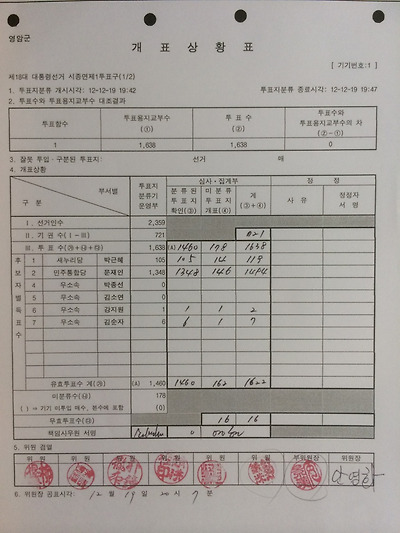 영암군
개 표 상 황 표
[ 기기번호:1 ]
제18대 대통령선거 시종면제1투표구(1/2)
1. 투표지분류 개시시각: 12-12-19 19:42 투표지분류 종료시각: 12-12-19 19:47
2. 투표수와 투표용지교부수 대조결과
투표함수 투표용지교부수 (①) 투 표 수 (②) 투표수와 투표용지교부수의 차 (②-①)
1 1,638 1,638 0
3. 잘못 투입·구분된 투표지: 선거 매
4. 개표상황
구 분 부서별 투표지 분류기 운영부 심사·집계부 정 정
분류된 투표지 확인(③) 미분류 투표지 개표(④) 계 (③+④) 사 유 정정자 서 명
Ⅰ. 선거인수 2,359
Ⅱ. 기 권 수(Ⅰ-Ⅲ) 721 721
Ⅲ. 투 표 수(㉮+㉯+㉰) 1,638 (A) 1460 178 1638
후보자별득표수
1 새누리당 박근혜 105 105 14 119
2 민주통합당 문재인 1,348 1348 146 1494
4 무소속 박종선 0
5 무소속 김소연 0
6 무소속 강지원 1 1 1 2
7 무소속 김순자 6 6 1 7
유효투표수 계(㉮) (A) 1,460 1460 162 1622
미분류수(㉯) 178
( ) ⇒ 기기 미투입 매수, 본수에 포함 (0)
무효투표수(㉰) 16 16
책임사무원 서명
5. 위원 검열
위 원 위 원 위 원 위 원 위 원 위 원 위 원 부위원장 위원장
6. 위원장 공표시각: 12 월 19 일 20 시 7 분